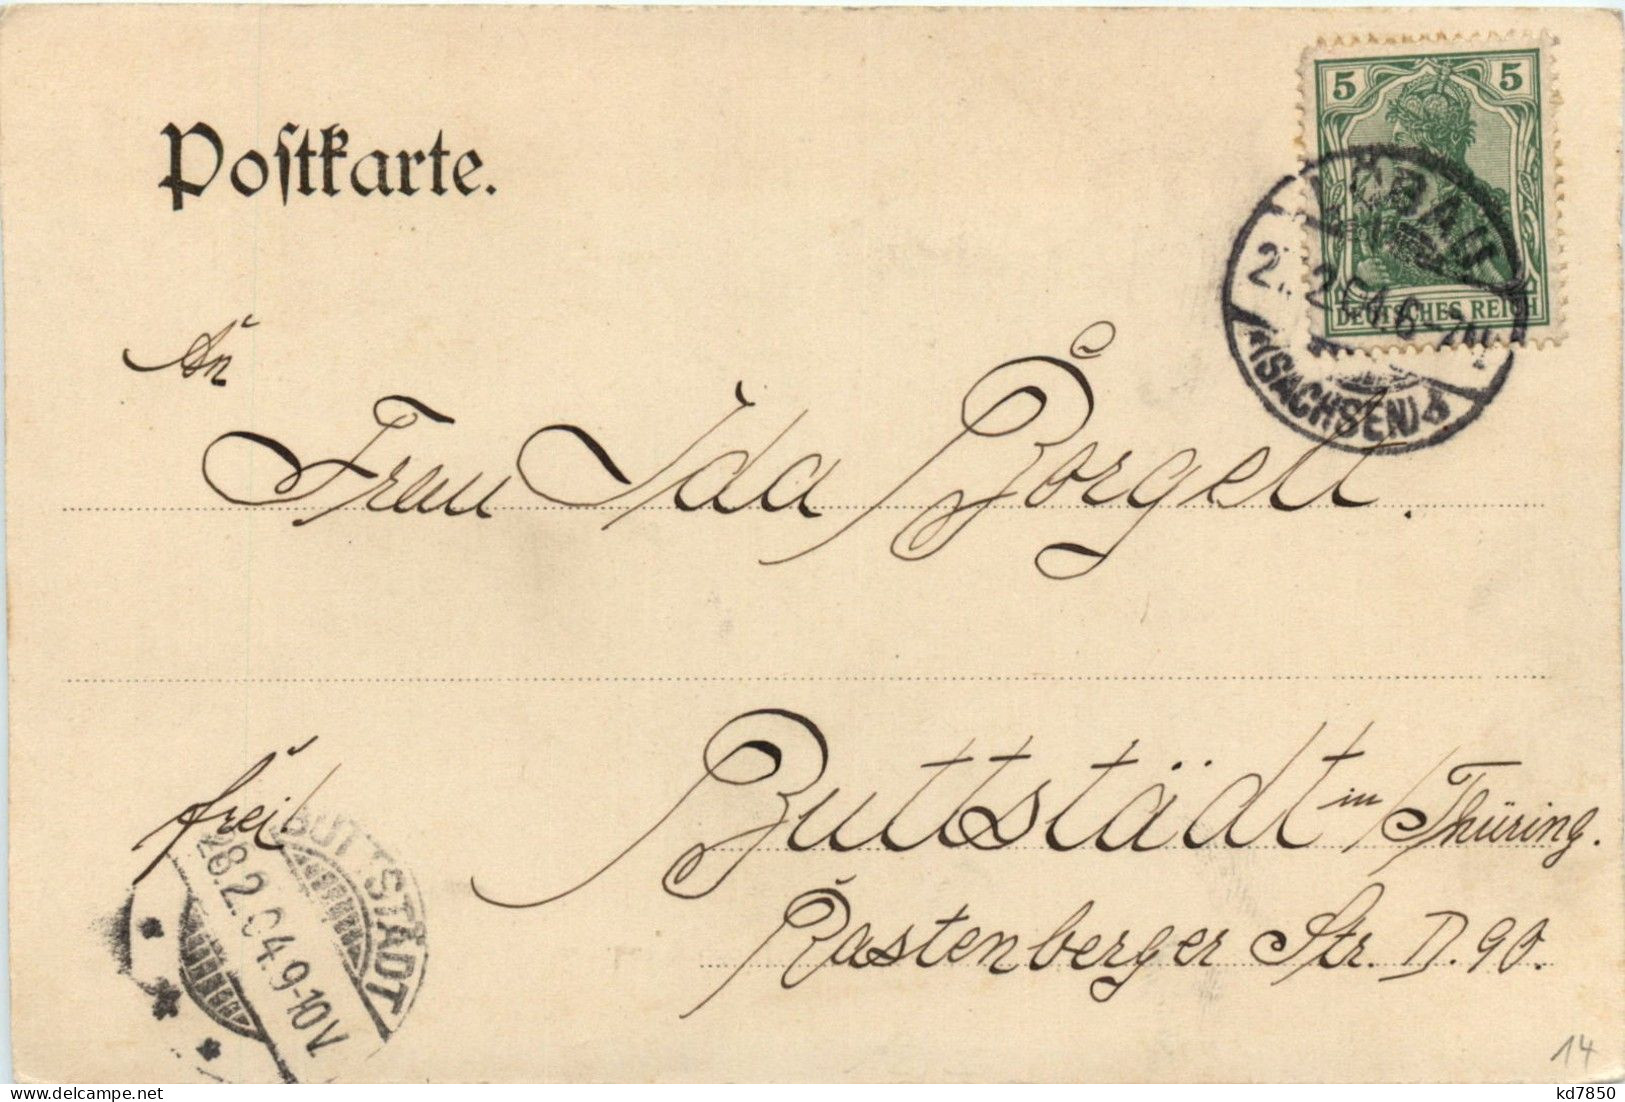 5 5
DEUTSCHES REICH
LÖBAU
2.2.04.6-7N.
(SACHSEN) b
Postkarte.
An
Frau Ida Börgelt.
frei!
Buttstädt in Thüring.
Rastenberger Str. D. 90.
BUTTSTÄDT
28.2.04.9-10V.
14
delcampe.net
kd7850